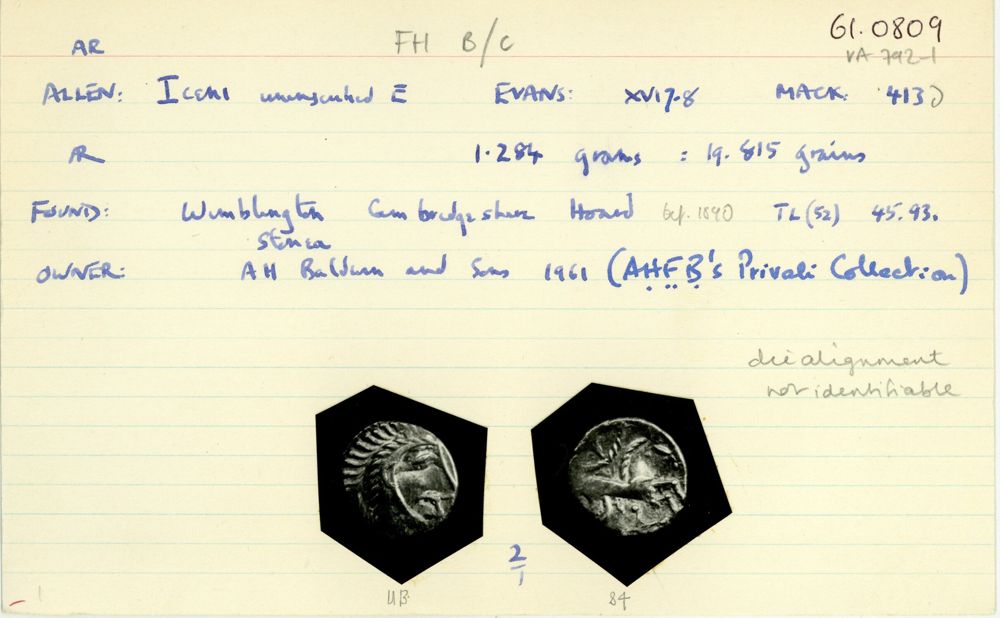 61.0809
AR FH B/C VA 792-1
ALLEN: ICENI uninscribed E EVANS: XVI 7-8 MACK: 413
AR 1.284 grams = 19.815 grains
FOUND: Wimblington Cambridgeshire Hoard bef. 1890 TL (52) 45.93.
Stonea
OWNER: A H Baldwin and Sons 1961 (AHFB's Private Collection)
die alignment
not identifiable
2/1
UB 84